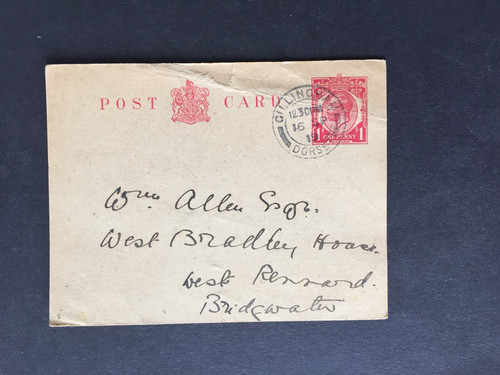 POST CARD
GILLINGHAM
12.30PM
16 SP
19
DORSET
1 ONE PENNY 1
Wm Allen Esqr.
West Bradley House
West Pennard.
Bridgwater